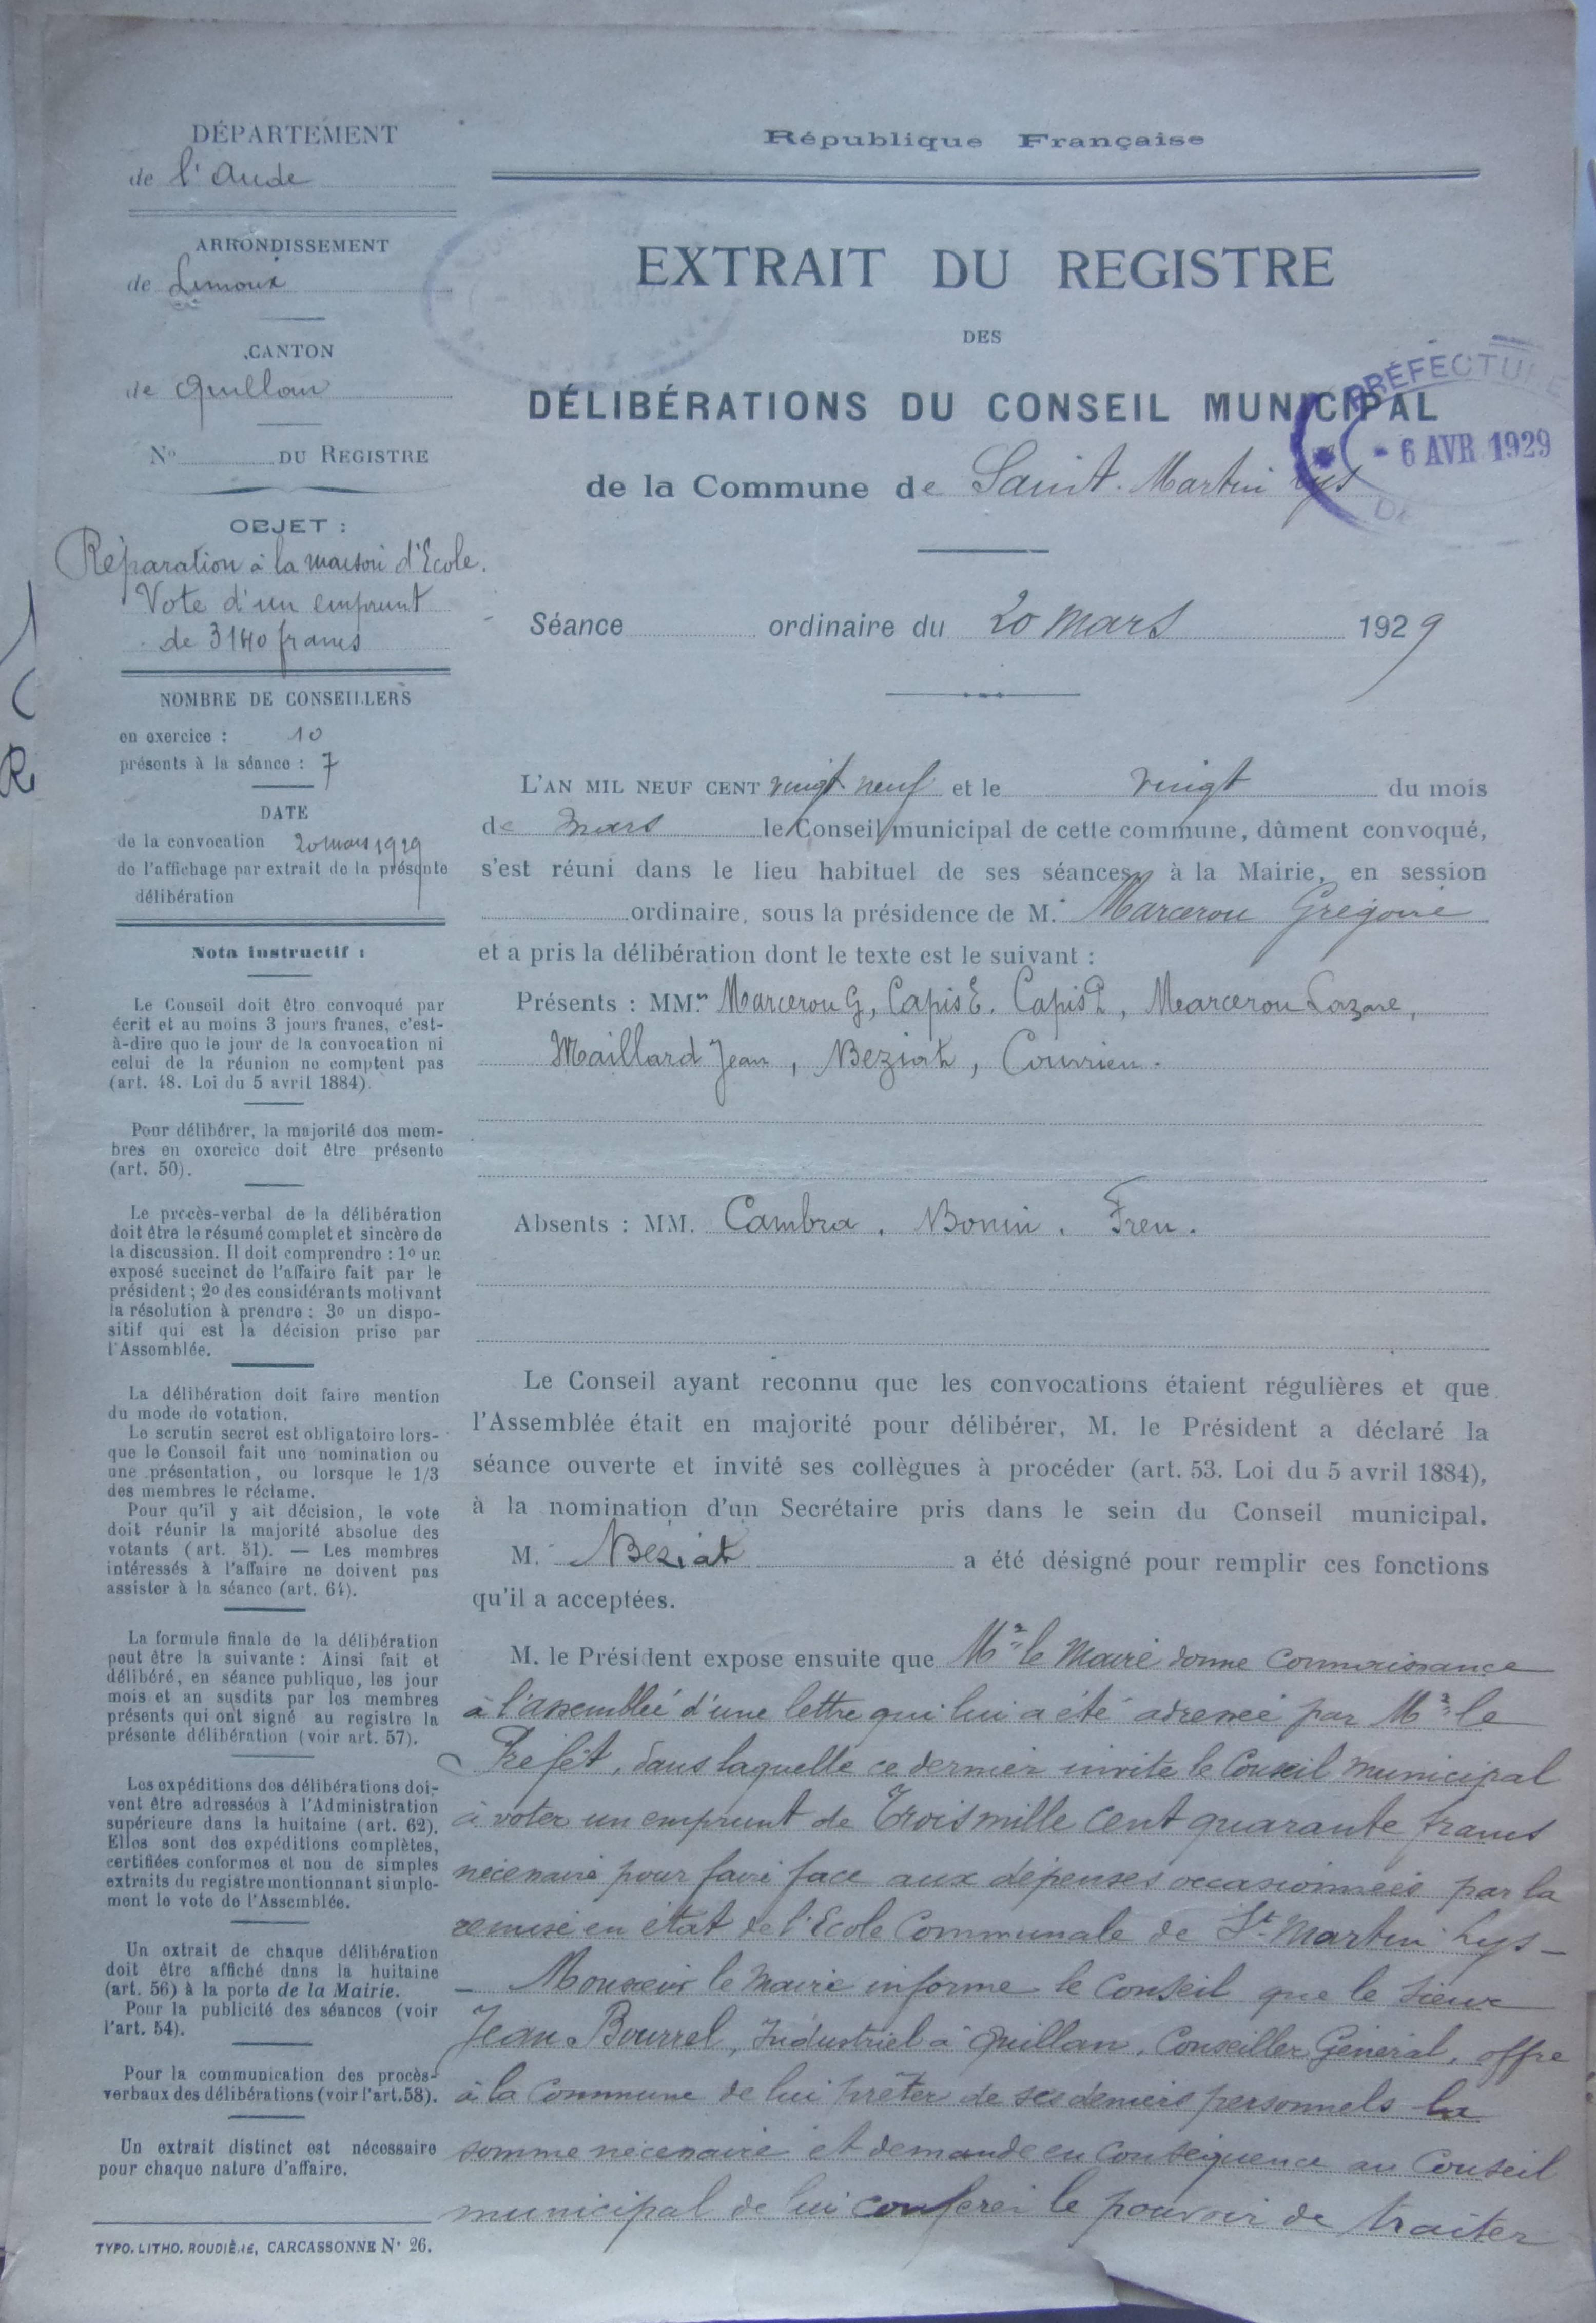 DÉPARTEMENT
de l'Aude
ARRONDISSEMENT
de Limoux
CANTON
de Quillan
N° DU REGISTRE
OBJET :
Réparation à la maison d'Ecole.
Vote d'un emprunt
de 3140 francs
NOMBRE DE CONSEILLERS
en exercice : 10
présents à la séance : 7
DATE
de la convocation 20 mars 1929
de l'affichage par extrait de la présente
délibération
Nota instructif :
Le Conseil doit être convoqué par
écrit et au moins 3 jours francs, c'est-
à-dire que le jour de la convocation ni
celui de la réunion ne comptent pas
(art. 48. Loi du 5 avril 1884).
Pour délibérer, la majorité des mem-
bres en exercice doit être présente
(art. 50).
Le procès-verbal de la délibération
doit être le résumé complet et sincère de
la discussion. Il doit comprendre : 1o un
exposé succinct de l'affaire fait par le
président ; 2o des considérants motivant
la résolution à prendre ; 3o un dispo-
sitif qui est la décision prise par
l'Assemblée.
La délibération doit faire mention
du mode de votation.
Le scrutin secret est obligatoire lors-
que le Conseil fait une nomination ou
une présentation, ou lorsque le 1/3
des membres le réclame.
Pour qu'il y ait décision, le vote
doit réunir la majorité absolue des
votants (art. 51). — Les membres
intéressés à l'affaire ne doivent pas
assister à la séance (art. 64).
La formule finale de la délibération
peut être la suivante : Ainsi fait et
délibéré, en séance publique, les jour
mois et an susdits par les membres
présents qui ont signé au registre la
présente délibération (voir art. 57).
Les expéditions des délibérations doi-
vent être adressées à l'Administration
supérieure dans la huitaine (art. 62).
Elles sont des expéditions complètes,
certifiées conformes et non de simples
extraits du registre mentionnant simple-
ment le vote de l'Assemblée.
Un extrait de chaque délibération
doit être affiché dans la huitaine
(art. 56) à la porte de la Mairie.
Pour la publicité des séances (voir
l'art. 54).
Pour la communication des procès-
verbaux des délibérations (voir l'art.58).
Un extrait distinct est nécessaire
pour chaque nature d'affaire.
TYPO. LITHO. ROUDIÈRE, CARCASSONNE N° 26.
République Française
EXTRAIT DU REGISTRE
DES
DÉLIBÉRATIONS DU CONSEIL MUNICIPAL
PRÉFECTURE
- 6 AVR 1929
DE
de la Commune de Saint-Martin Lys
Séance ordinaire du 20 mars 1929
L'AN MIL NEUF CENT vingt neuf et le vingt du mois
de mars le Conseil municipal de cette commune, dûment convoqué,
s'est réuni dans le lieu habituel de ses séances, à la Mairie, en session
ordinaire, sous la présidence de M. Marcerou Grégoire
et a pris la délibération dont le texte est le suivant :
Présents : MMrs Marcerou G, Capis E. Capis P, Marcerou Lazare,
Maillard Jean, Beziat, Couvrien.
Absents : MM. Cambra. Bonin. Freu.
Le Conseil ayant reconnu que les convocations étaient régulières et que
l'Assemblée était en majorité pour délibérer, M. le Président a déclaré la
séance ouverte et invité ses collègues à procéder (art. 53. Loi du 5 avril 1884),
à la nomination d'un Secrétaire pris dans le sein du Conseil municipal.
M. Beziat a été désigné pour remplir ces fonctions
qu'il a acceptées.
M. le Président expose ensuite que Mr le Maire donne connaissance
à l'assemblée d'une lettre qui lui a été adressée par Mr le
Préfet, dans laquelle ce dernier invite le Conseil municipal
à voter un emprunt de Trois mille cent quarante francs
nécessaire pour faire face aux dépenses occasionnées par la
remise en état de l'Ecole Communale de St-Martin Lys –
– Monsieur le Maire informe le Conseil que le sieur
Jean Bourrel, Industriel à Quillan, Conseiller Général, offre
à la Commune de lui prêter de ses deniers personnels la
somme nécessaire et demande en conséquence au Conseil
municipal de lui conférer le pouvoir de traiter